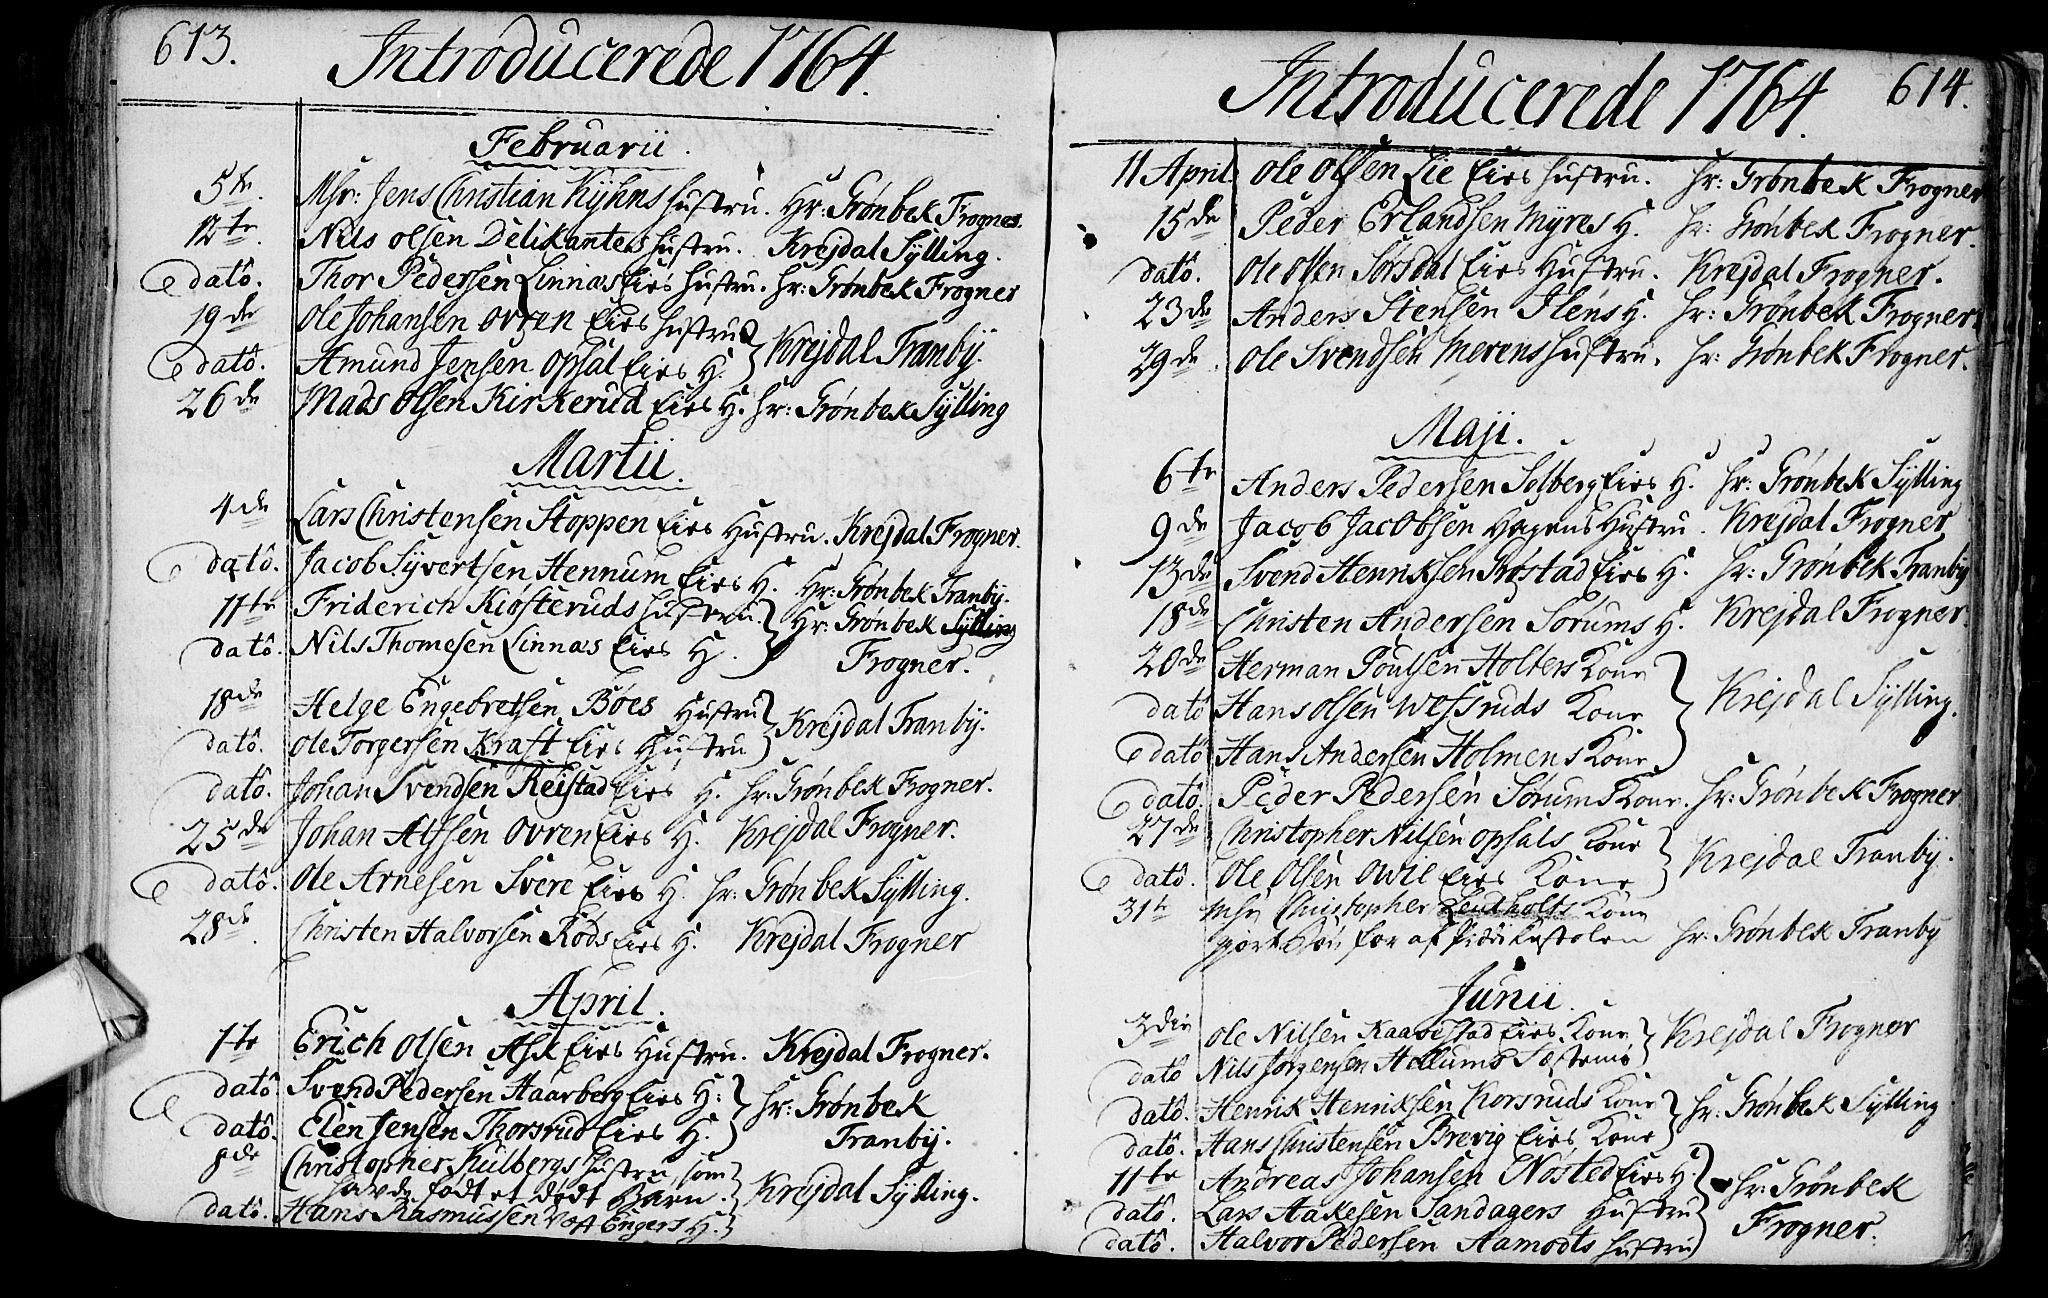 613.
Introducerede 1764.
Februarii.
5te. Msr: Jens Christian Kyhns Hustru. Hr: Grønbek Frogner.
12te. Nils Olsen Delikantes Hustru. Krejdal Sylling.
dato. Thor Pedersen Linnæs Eies Hustru. Hr: Grønbek Frogner
19de Ole Johansen Ovren Eies Hustru
dato. Amund Jensen Opsal Eies H. Krejdal Tranby.
26de Mads Olsen Kirkerud Eies H. Hr: Grønbek Sylling
Martii.
4de Lars Christensen Stoppen Eies Hustru. Krejdal Frogner.
dato. Jacob Syvertsen Hennum Eies H. Hr: Grønbek Tranby.
11te Friderich Kiøsteruds Hustru. Hr: Grønbek Sylling
dato. Nils Thomesen Linnæs Eies H. Frogner.
18de Helge Engebretsen Bøes Hustru
dato. Ole Torgersen Kraft Eies Hustru Krejdal Tranby.
dato. Johan Svendsen Reistad Eies H. Hr: Grønbek Frogner.
25de Johan Alfsen Ovren Eies H. Krejdal Frogner.
dato. Ole Arnesen Svere Eies H. Hr: Grønbek Sylling.
28de. Christen Halvorsen Røds Eies H. Krejdal Frogner
April.
1te Erich Olsen Ask Eies Hustru. Krejdal Frogner.
dato Svend Pedersen Haarberg Eies H: Hr: Grønbek
dato. Elen Jensen Thorsrud Eies H. Tranby.
8de Christopher Kulbergs Hustru som
havde født et dødt Barn. Krejdal Sylling.
dato. Hans Rasmussen Engers H.
614.
Introducerede 1764.
11 April. Ole Olsen Lie Eies Hustru. Hr: Grønbek Frogner
15de Peder Erlandsen Myres H. Hr: Grønbek Frogner.
dato. Ole Olsen Sørsdal Eies Hustru. Krejdal Frogner.
23de Anders Stensen Ilens H. Hr: Grønbek Frogner
29de. Ole Svendsen Merens Hustru. Hr: Grønbek Frogner.
Maji.
6te Anders Pedersen Solberg Eies H. Hr: Grønbek Sylling
9de Jacob Jacobsen Hagens Hustru. Krejdal Frogner
13de Svend Henriksen Røstad Eies H. Hr: Grønbek Tranby
18de Christen Andersen Sørums H. Krejdal Frogner.
20de Herman Poulsen Holters Kone
dato Hans Olsen Wefsruds Kone Krejdal Sylling.
dato Hans Andersen Holmens Kone
dato. Peder Pedersen Sørums Kone. Hr: Grønbek Frogner
27de Christopher Nilsen Opsals Kone
dato. Ole Olsen Owil Eies Kone Krejdal Tranby.
31te Msr Christopher Leutholts Kone
giort Hr: Grønbek Tranby
Junii.
3die Ole Nilsen Kaavestad Eies Kone Krejdal Frogner
dato Nils Jørgensen Hellums
dato. Henrik Henriksen Korsruds Kone Hr: Grønbek Sylling
dato. Hans Christensen Brevig Eies Kone
11te Andreas Johansen Nøsted Eies H. Hr: Grønbek
dato. Lars Aakesen Sandagers Hustru Frogner.
dato. Halvor Pedersen Aamodts Hustru